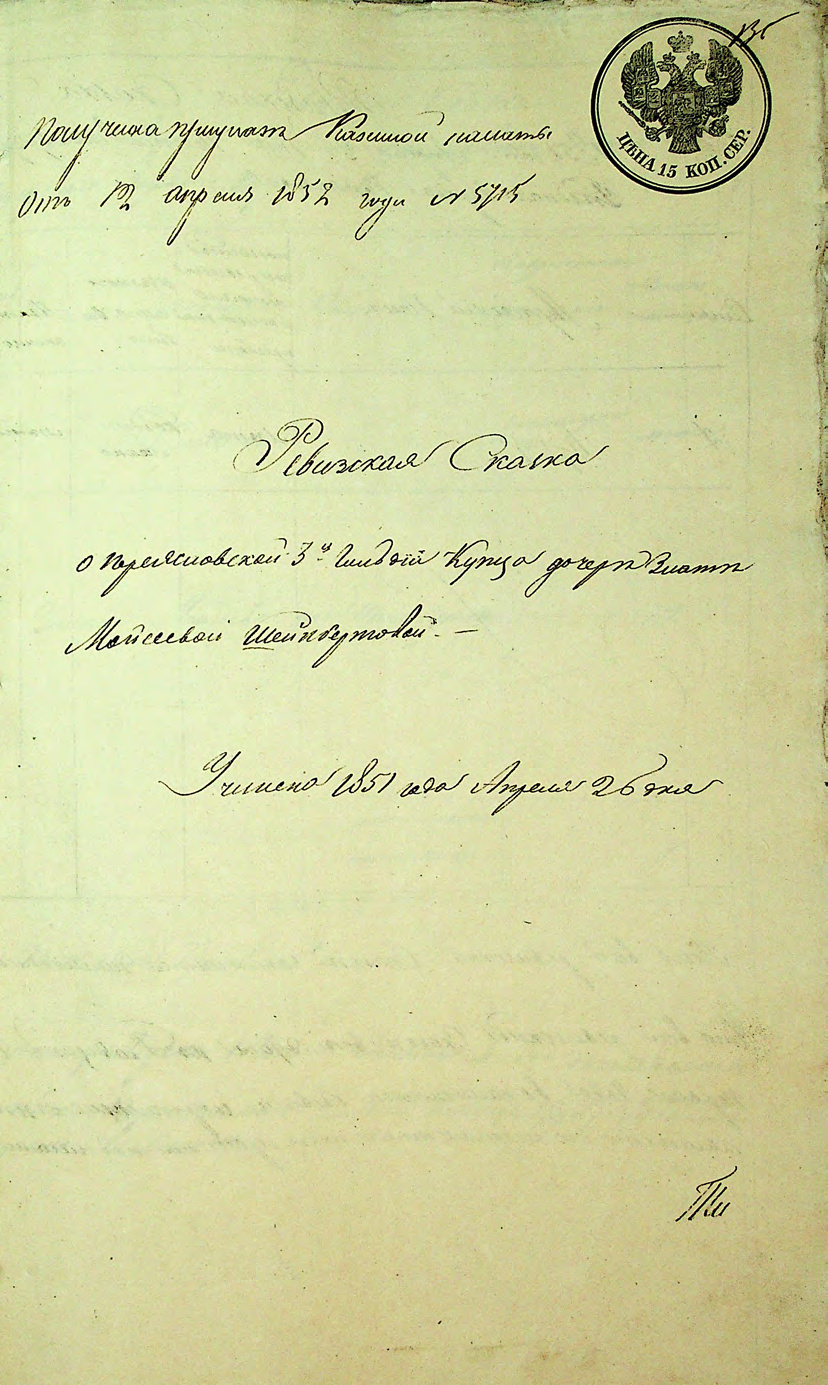 135
ЦѢНА 15 КОП. СЕР.
Получена при указѣ Казенной палаты
отъ 12 апреля 1852 года № 5715
Ревизская Сказка
о Переясловской 3й Гильдіи Купца дочери Златы
Мойсеевой Шейнбертовой. —
Учинена 1851 года Апреля 26 дня